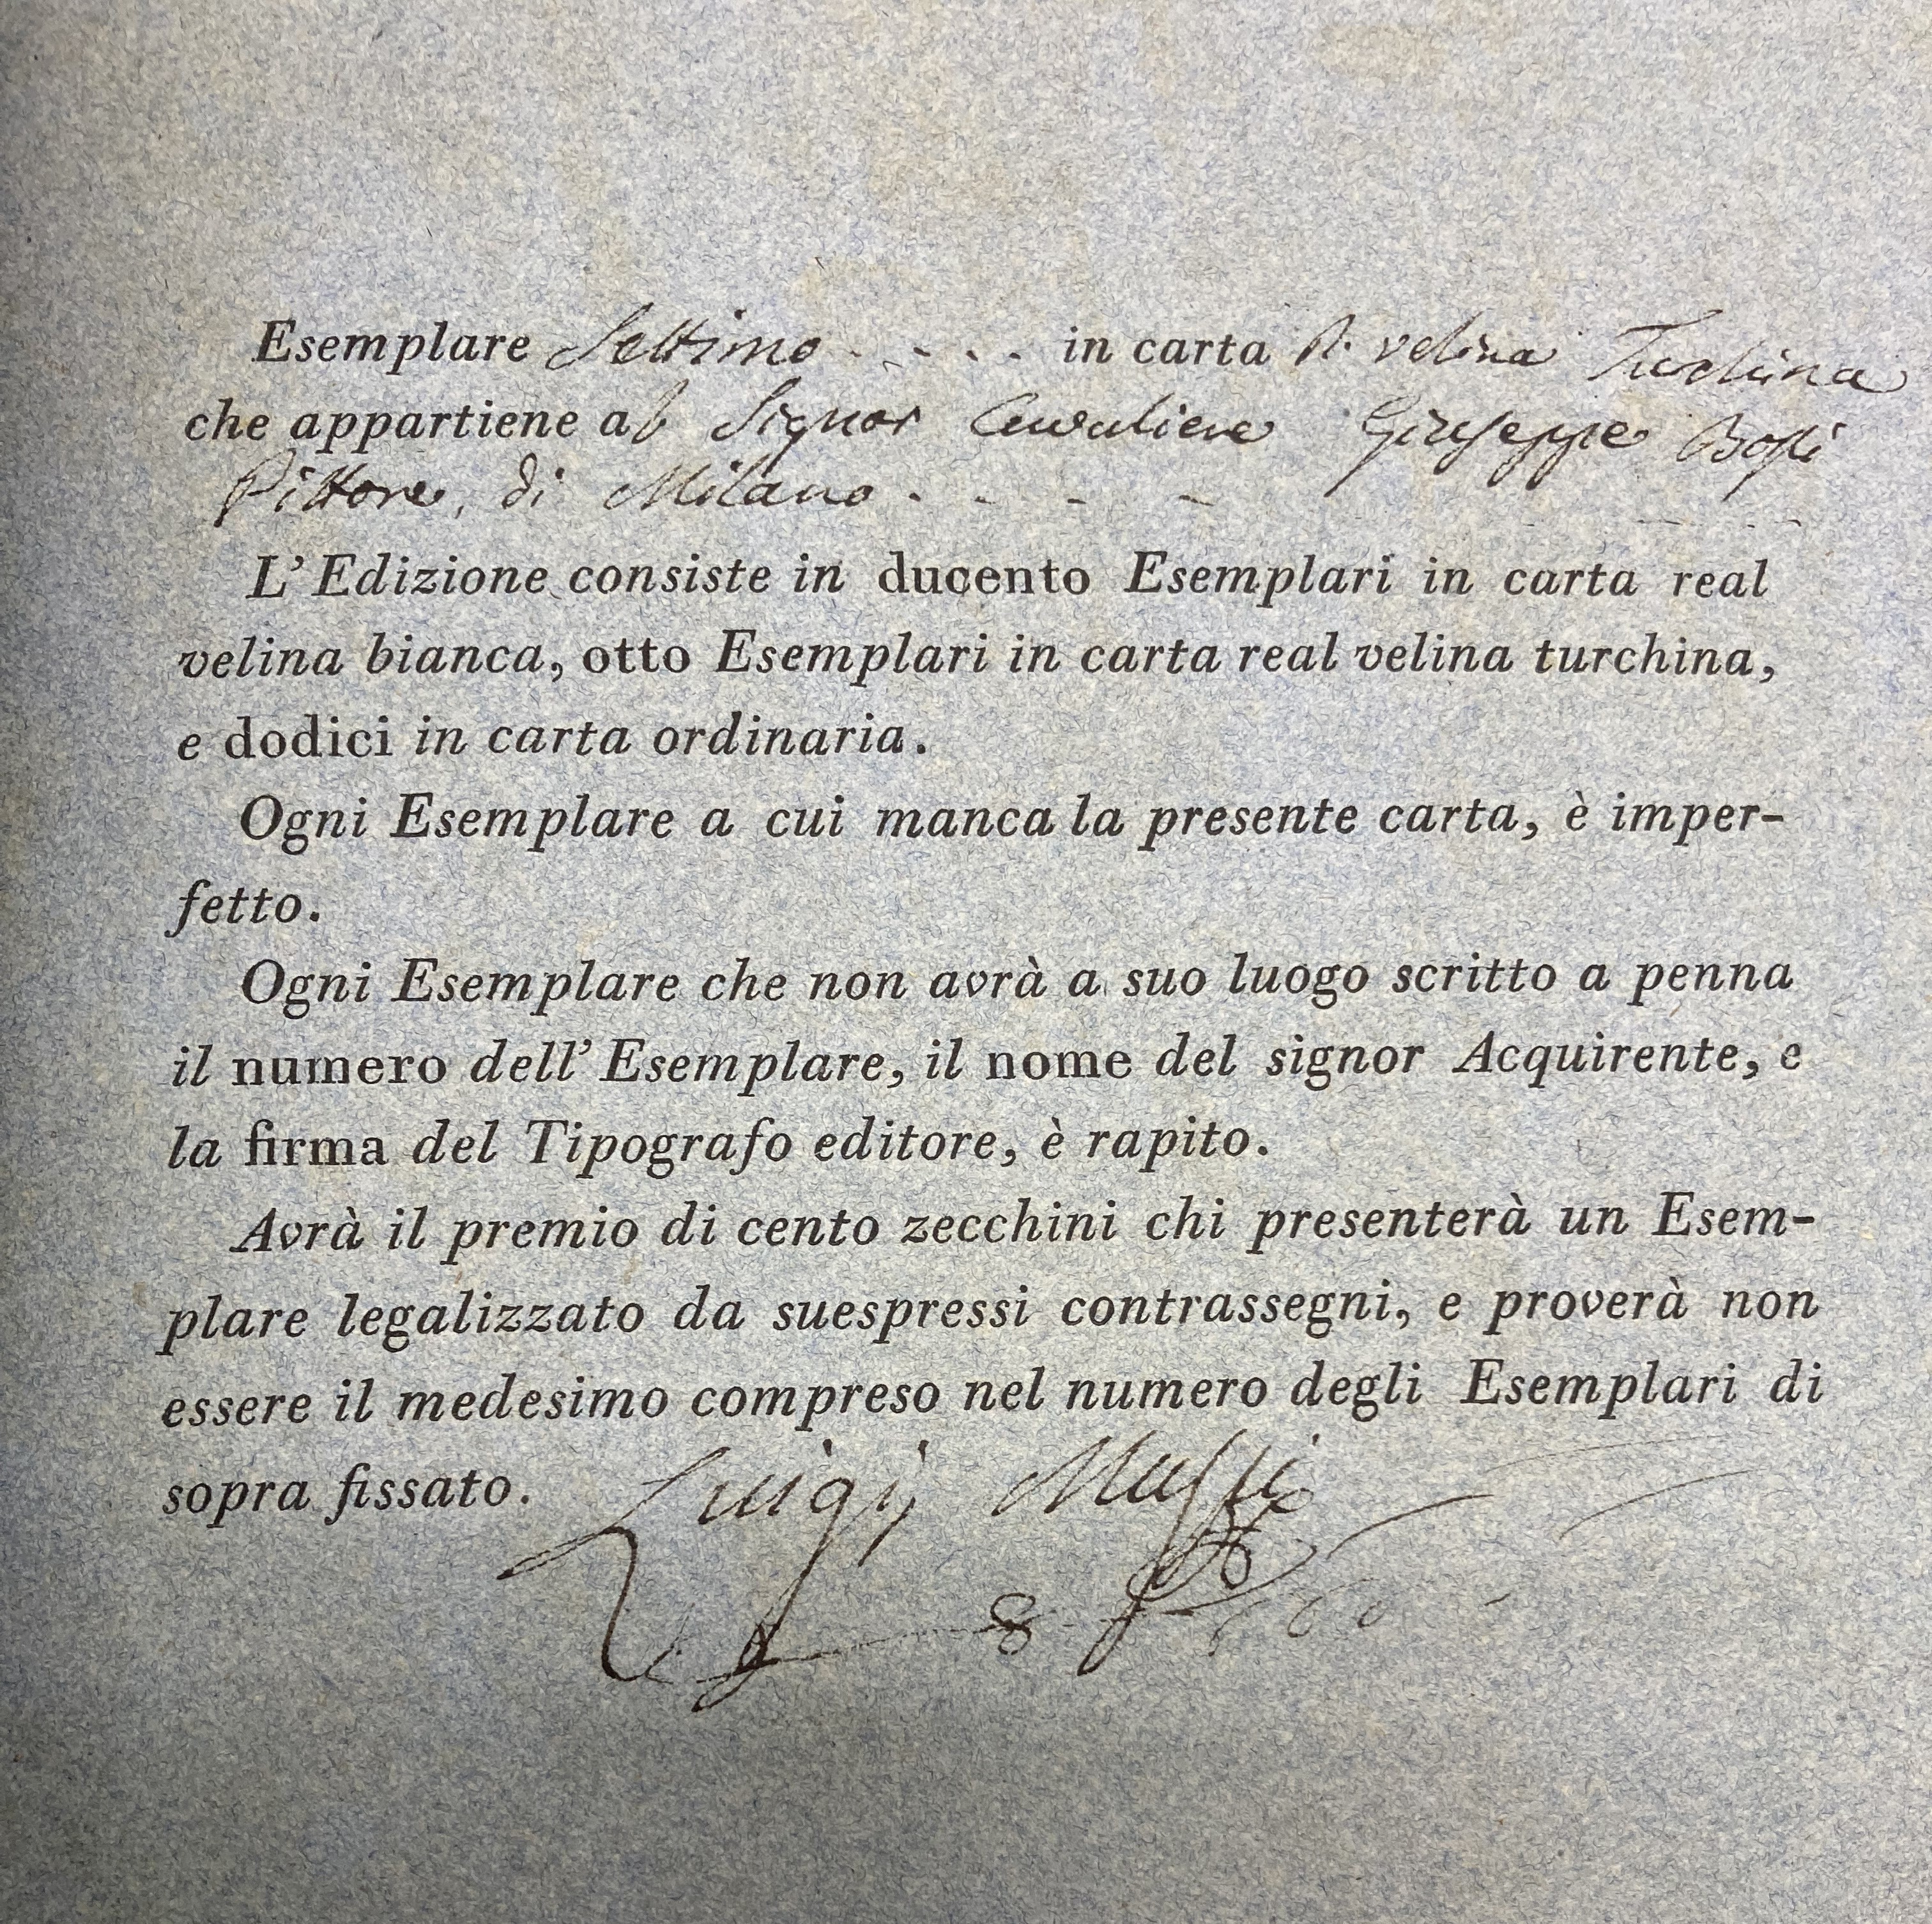 Esemplare Settimo - - - - in carta R. velina Turchina
che appartiene al Signor Cavaliere Giuseppe Bossi
Pittore, di Milano - - - -
L'Edizione consiste in ducento Esemplari in carta real
velina bianca, otto Esemplari in carta real velina turchina,
e dodici in carta ordinaria.
Ogni Esemplare a cui manca la presente carta, è imper-
fetto.
Ogni Esemplare che non avrà a suo luogo scritto a penna
il numero dell'Esemplare, il nome del signor Acquirente, e
la firma del Tipografo editore, è rapito.
Avrà il premio di cento zecchini chi presenterà un Esem-
plare legalizzato da suespressi contrassegni, e proverà non
essere il medesimo compreso nel numero degli Esemplari di
sopra fissato.
Luigi Mussi